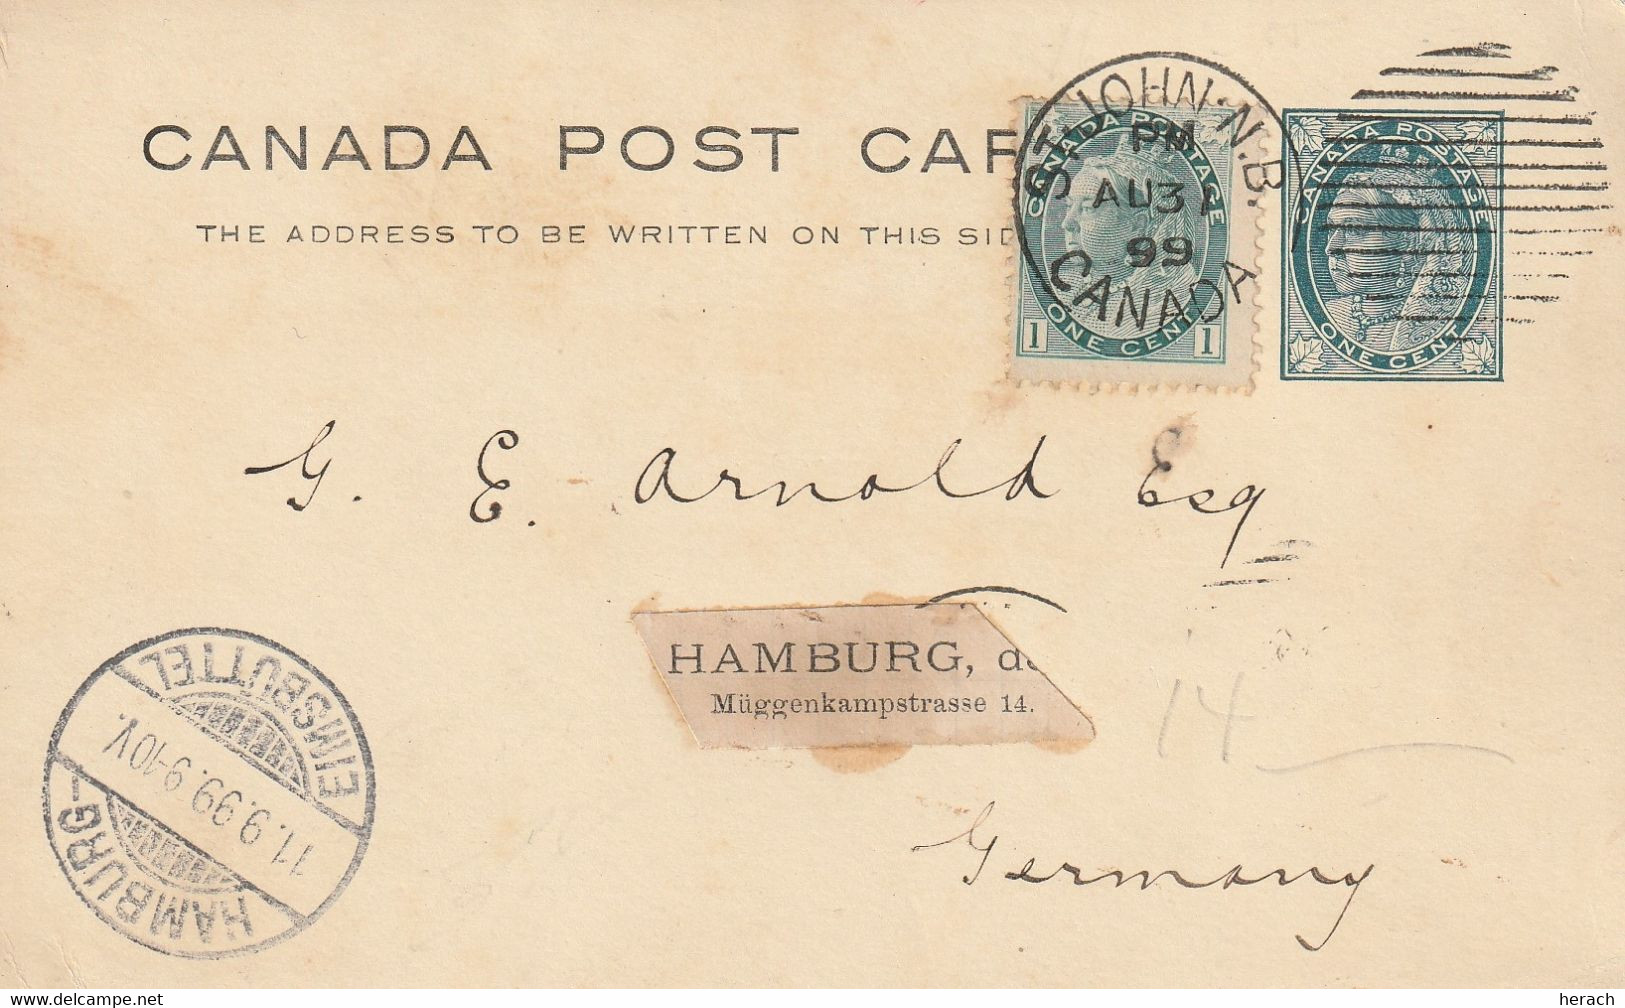 CANADA POST CAR
THE ADDRESS TO BE WRITTEN ON THIS SID
CANADA POSTAGE
1 ONE CENT 1
CANADA POSTAGE
ONE CENT
ST. JOHN. N.B.
PM
AU 31
99
CANADA
G. E. Arnold Esq
HAMBURG, de
Müggenkampstrasse 14.
14
Germany
HAMBURG-
EIMSBÜTTEL
11.9.99.9-10V.
delcampe.net
herach